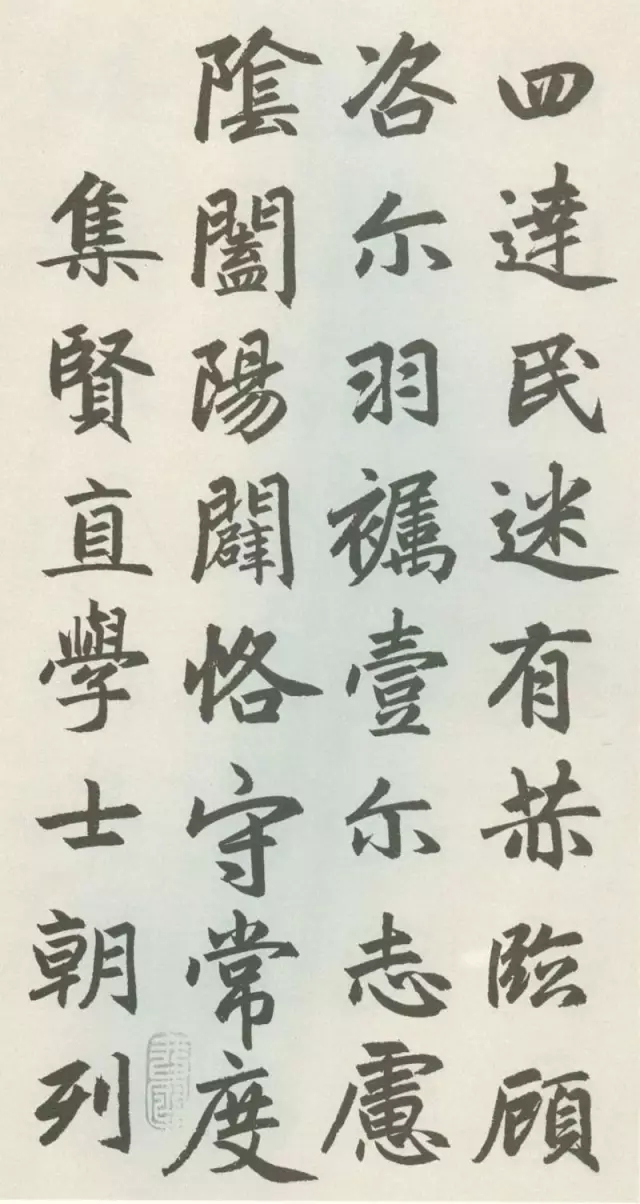 四達民迷有赫臨顧
咨尔羽壹尔志慮
陰闔陽闢恪守常度
集賢直學士朝列